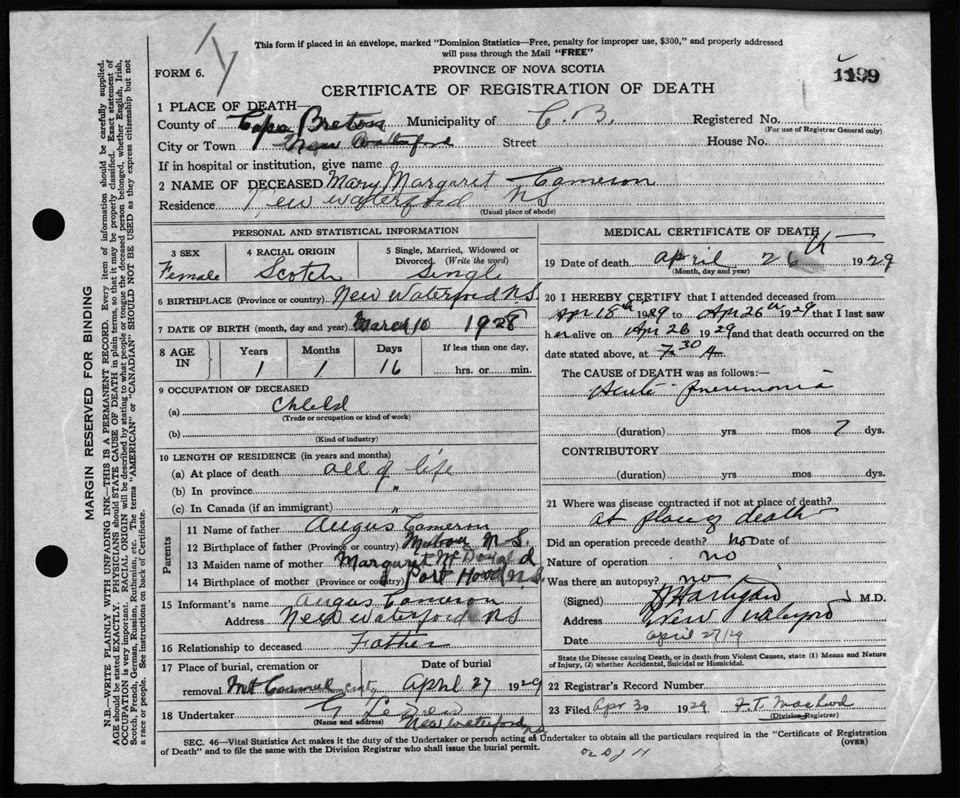 This form if placed in an envelope, marked "Dominion Statistics—Free, penalty for improper use, $300," and properly addressed
will pass through the Mail "FREE"
FORM 6.
PROVINCE OF NOVA SCOTIA
1199
CERTIFICATE OF REGISTRATION OF DEATH
1 PLACE OF DEATH—
County of Cape Breton Municipality of C. B. Registered No.
(For use of Registrar General only)
City or Town New Waterford Street House No.
If in hospital or institution, give name
2 NAME OF DECEASED Mary Margaret Cameron
Residence New Waterford N S
(Usual place of abode)
PERSONAL AND STATISTICAL INFORMATION
3 SEX 4 RACIAL ORIGIN 5 Single, Married, Widowed or
Divorced. (Write the word)
Female Scotch Single
6 BIRTHPLACE (Province or country) New Waterford N.S.
7 DATE OF BIRTH (month, day and year) March 10 1928
8 AGE IN Years Months Days If less than one day,
1 1 16 hrs. or min.
9 OCCUPATION OF DECEASED
(a) Child
(Trade or occupation or kind of work)
(b)
(Kind of industry)
10 LENGTH OF RESIDENCE (in years and months)
(a) At place of death all of life
(b) In province "
(c) In Canada (if an immigrant) "
Parents
11 Name of father Angus Cameron
12 Birthplace of father (Province or country) Mabou N.S.
13 Maiden name of mother Margaret McDonald
14 Birthplace of mother (Province or country) Port Hood N.S.
15 Informant's name Angus Cameron
Address New Waterford N S
16 Relationship to deceased Father
17 Place of burial, cremation or Date of burial
removal Mt Carmel cmty April 27 1929
18 Undertaker G
(Name and address) New Waterford NS
MEDICAL CERTIFICATE OF DEATH
19 Date of death April 26th 1929
(Month, day and year)
20 I HEREBY CERTIFY that I attended deceased from
Apr 18th 1929 to Apr 26th 1929 that I last saw
her alive on Apr 26 1929 and that death occurred on
date stated above, at 7.30 A m.
The CAUSE OF DEATH was as follows:—
Acute Pneumonia
(duration) yrs mos 7 dys.
CONTRIBUTORY
(duration) yrs mos dys.
21 Where was disease contracted if not at place of death?
at place of death
Did an operation precede death? no Date of
Nature of operation no
Was there an autopsy? no
(Signed) M.D.
Address New Waterford
Date April 27/29
State the Disease causing Death, or in death from Violent Causes, state (1) Means and Nature
of Injury, (2) whether Accidental, Suicidal or Homicidal.
22 Registrar's Record Number
23 Filed Apr 30 1929 F. T. MacLeod
(Division Registrar)
SEC. 46—Vital Statistics Act makes it the duty of the Undertaker or person acting as Undertaker to obtain all the particulars required in the "Certificate of Registration
of Death" and to file the same with the Division Registrar who shall issue the burial permit.
(OVER)
MARGIN RESERVED FOR BINDING
N.B.—WRITE PLAINLY WITH UNFADING INK—THIS IS A PERMANENT RECORD. Every item of information should be carefully supplied.
AGE should be stated EXACTLY. PHYSICIANS should STATE CAUSE OF DEATH in plain terms, so that it may be properly classified. Exact statement of
OCCUPATION is very important. RACIAL ORIGIN will be described by stating to what people or tongue the deceased person belonged, whether English, Irish,
Scotch, French, German, Russian, Ruthenian, etc. The terms "AMERICAN" or "CANADIAN" SHOULD NOT BE USED as they express citizenship but not
a race or people. See instructions on back of Certificate.